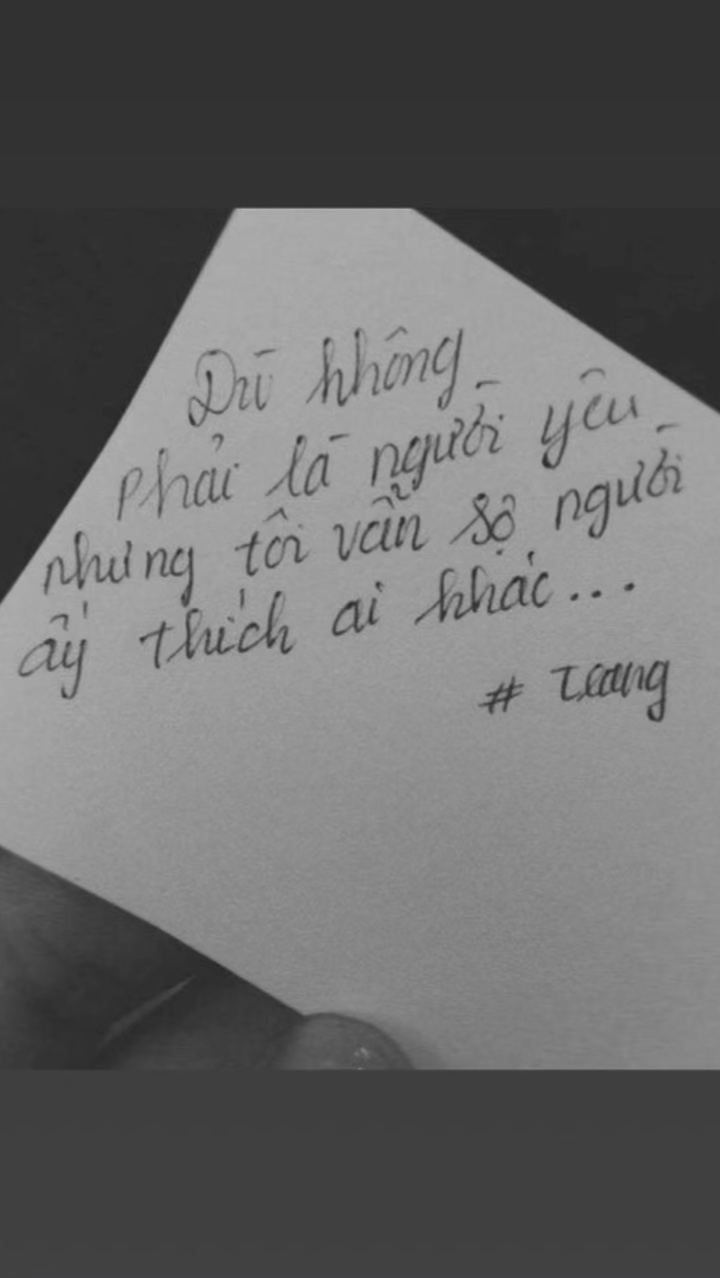 Dù không
phải là người yêu
nhưng tôi vẫn sợ người
ấy thích ai khác...
# Trang